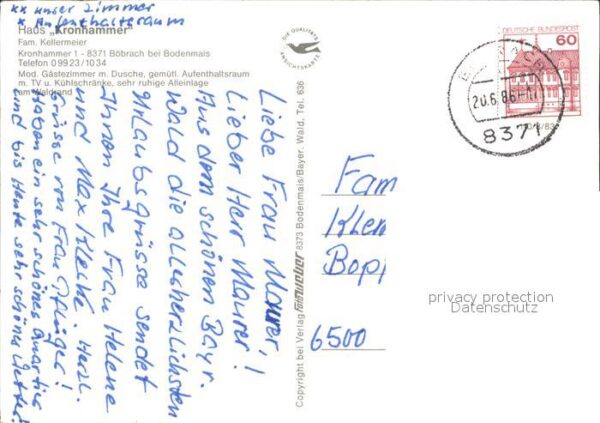 ** unser Zimmer
* Aufenthaltsraum
Haus „Kronhammer"
Fam. Kellermeier
Kronhammer 1 - 8371 Böbrach bei Bodenmais
Telefon 09923/1034
Mod. Gästezimmer m. Dusche, gemütl. Aufenthaltsraum
m. TV u. Kühlschränke, sehr ruhige Alleinlage
am Waldrand
Liebe Frau Maurer, !
Lieber Herr Maurer!
Aus dem schönen Bayr.
Wald die allerherzlichsten
Urlaubsgrüsse sendet
Ihnen Ihre Frau Helene
und Max Klecke Herzl.
Grüsse von Frau Pflüger!
Haben ein sehr schönes Quartier
und bis Heute sehr schönes Wetter!
DIE QUALITÄTS
ANSICHTSKARTE
Copyright bei Verlag 8373 Bodenmais/Bayer. Wald, Tel. 636
DEUTSCHE BUNDESPOST
60
20.6.86
8371
Fam
Klem
Bopp
6500
privacy protection
Datenschutz